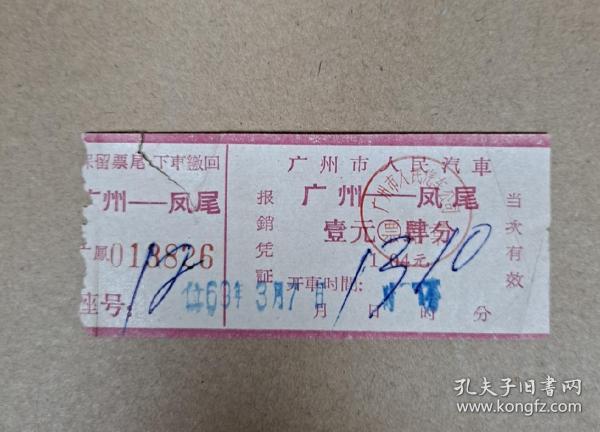 保留票尾 下車繳回
广州——凤尾
广凤013826
座号: 12
广州市人民汽車
广州——凤尾
壹元 肆分
1.04元
报銷凭証
当次有效
开車时間: 1310
69年3月7日
月 日 时 分
广州市人民汽車公司
票
孔夫子旧书网
www.kongfz.com